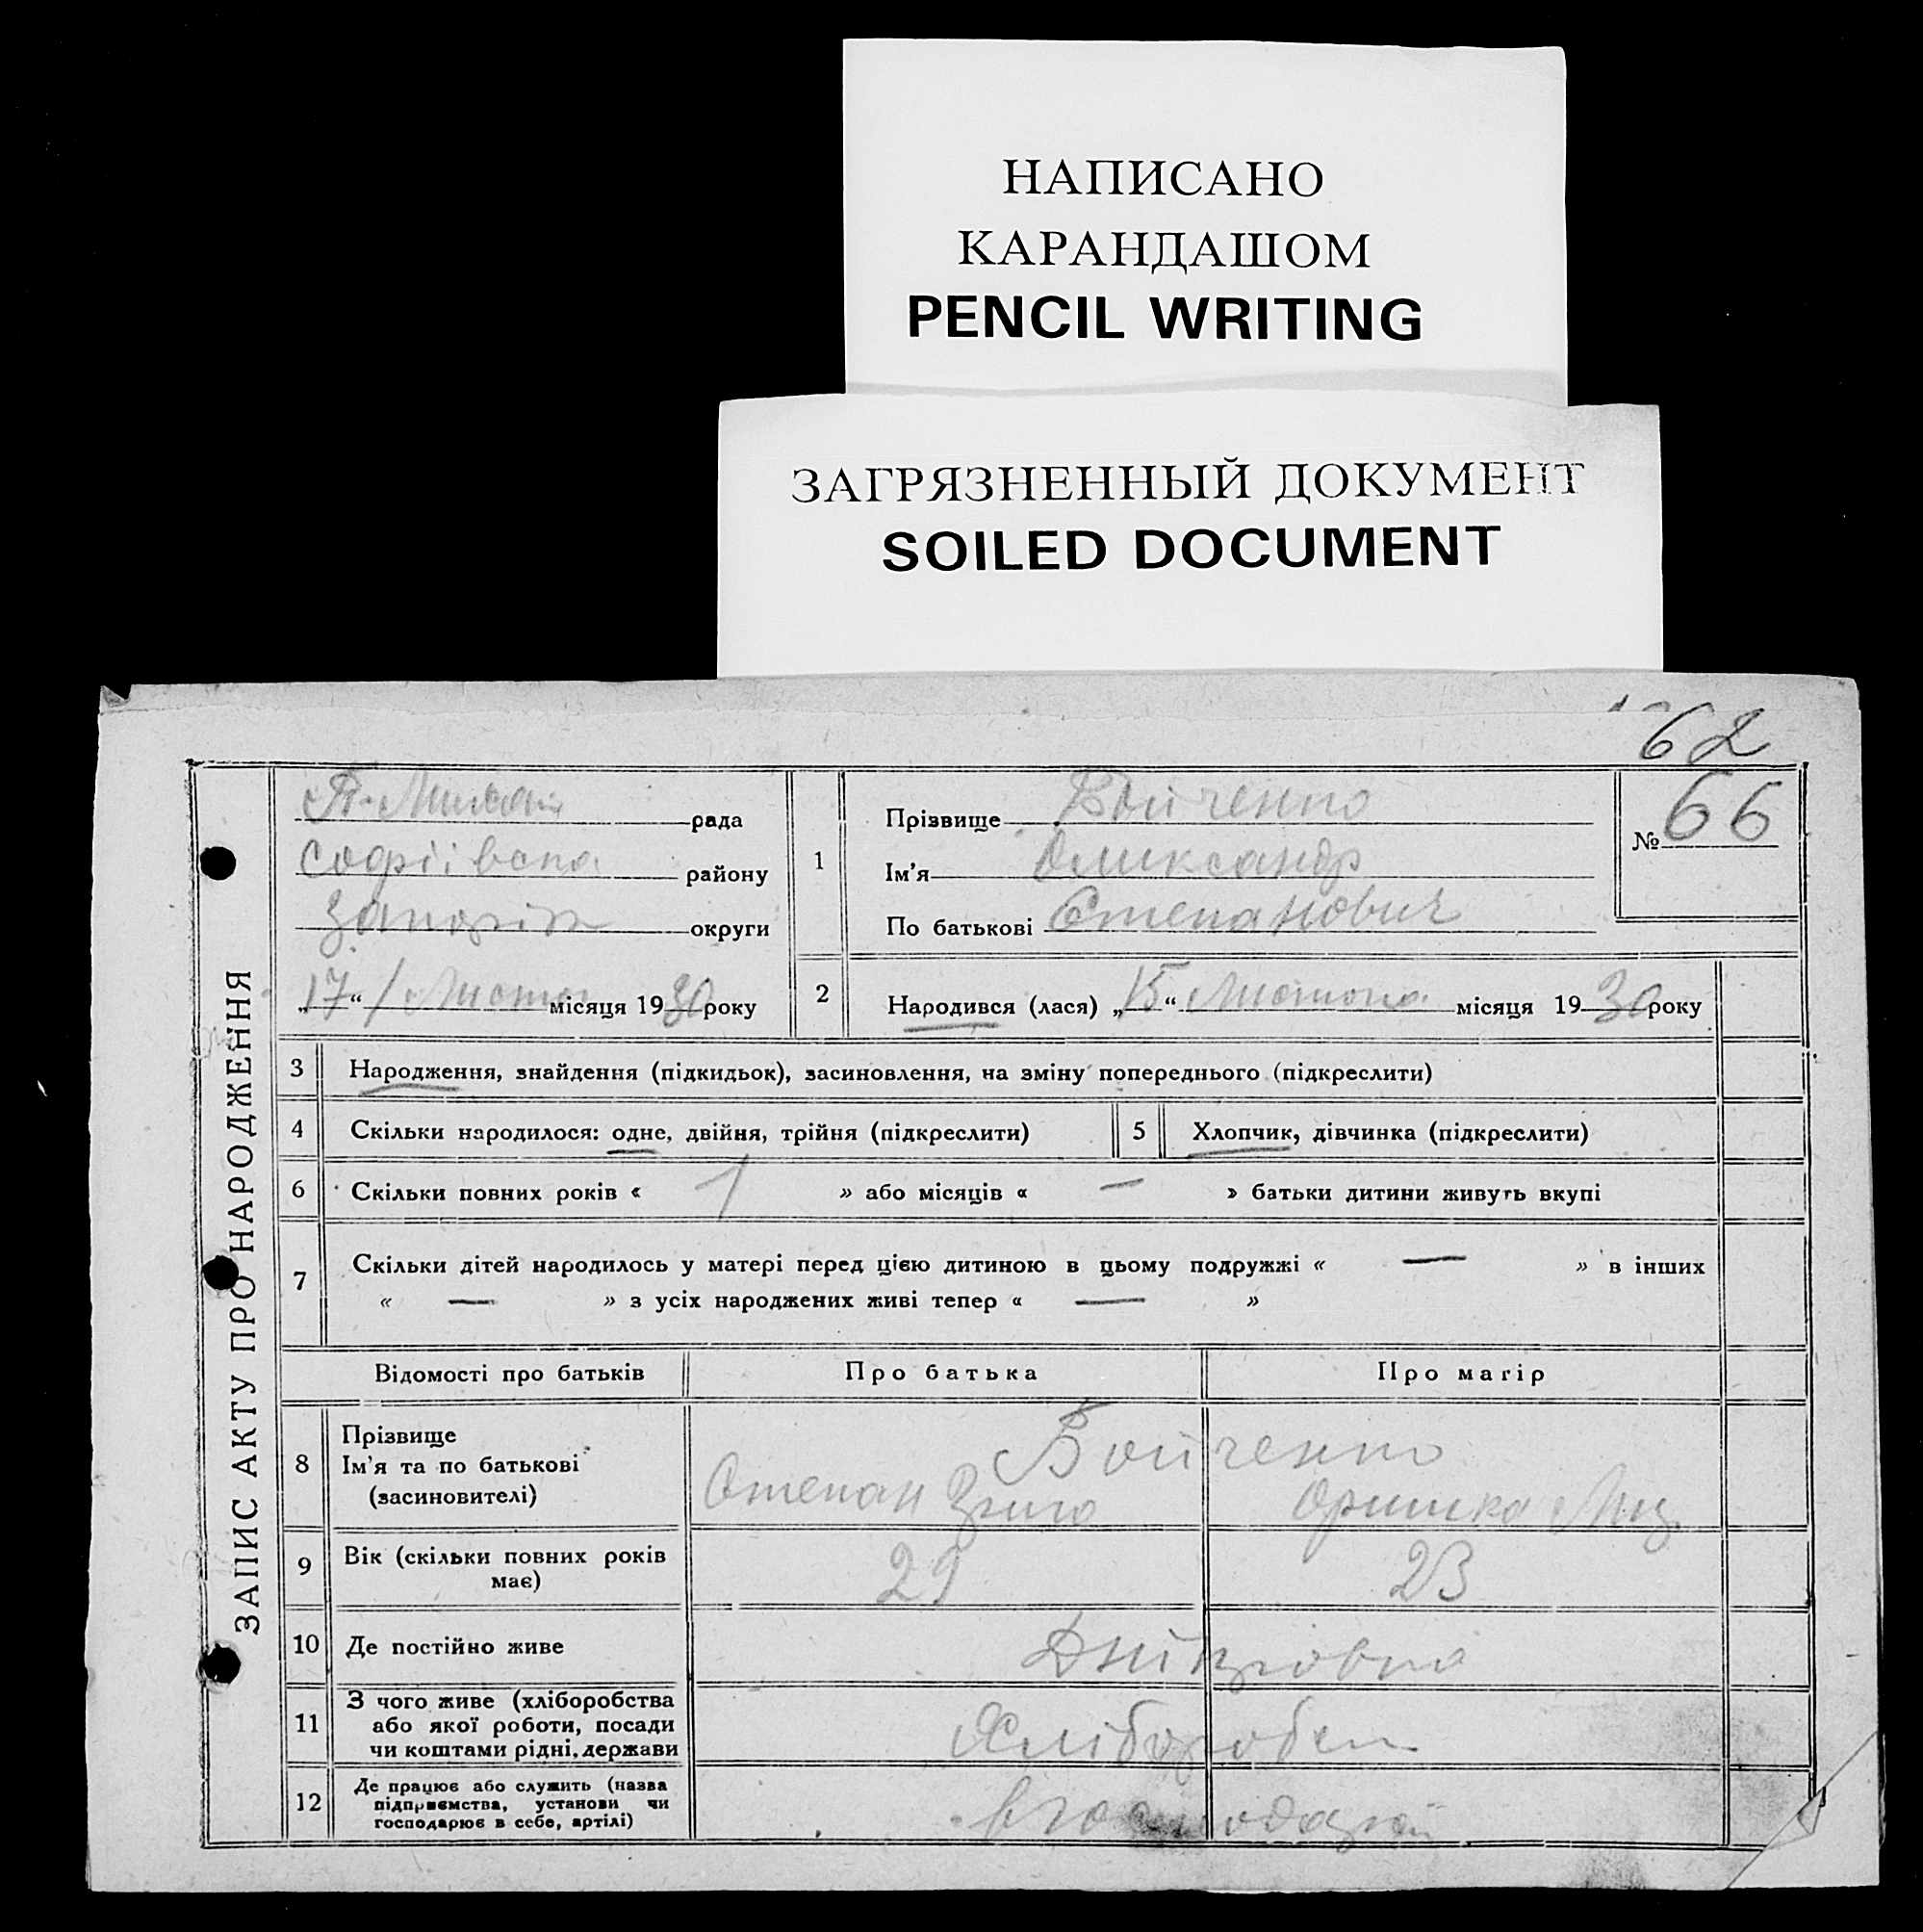 НАПИСАНО
КАРАНДАШОМ
PENCIL WRITING
ЗАГРЯЗНЕННЫЙ ДОКУМЕНТ
SOILED DOCUMENT
62
ЗАПИС АКТУ ПРО НАРОДЖЕННЯ
рада
Софіївсна району
округи
„17“ місяця 1930 року
1
Прізвище Бойченко
Ім'я Олександр
По батькові Степанович
№ 66
2
Народився (лася) „15“ Лютого місяця 1930 року
3 Народження, знайдення (підкидьок), засиновлення, на зміну попереднього (підкреслити)
4 Скільки народилося: одне, двійня, трійня (підкреслити)
5 Хлопчик, дівчинка (підкреслити)
6 Скільки повних років « 1 » або місяців « — » батьки дитини живуть вкупі
7 Скільки дітей народилось у матері перед цією дитиною в цьому подружжі « — » в інших
« — » з усіх народжених живі тепер « — »
Відомості про батьків
Про батька
Про матір
8
Прізвище
Ім'я та по батькові
(засиновителі)
Бойченко
Степан
Оришка
9
Вік (скільки повних років
має)
29
23
10 Де постійно живе
11
З чого живе (хліборобства
або якої роботи, посади
чи коштами рідні, держави
Хлібороби
12
Де працює або служить (назва
підприємства, установи чи
господарює в себе, артілі)